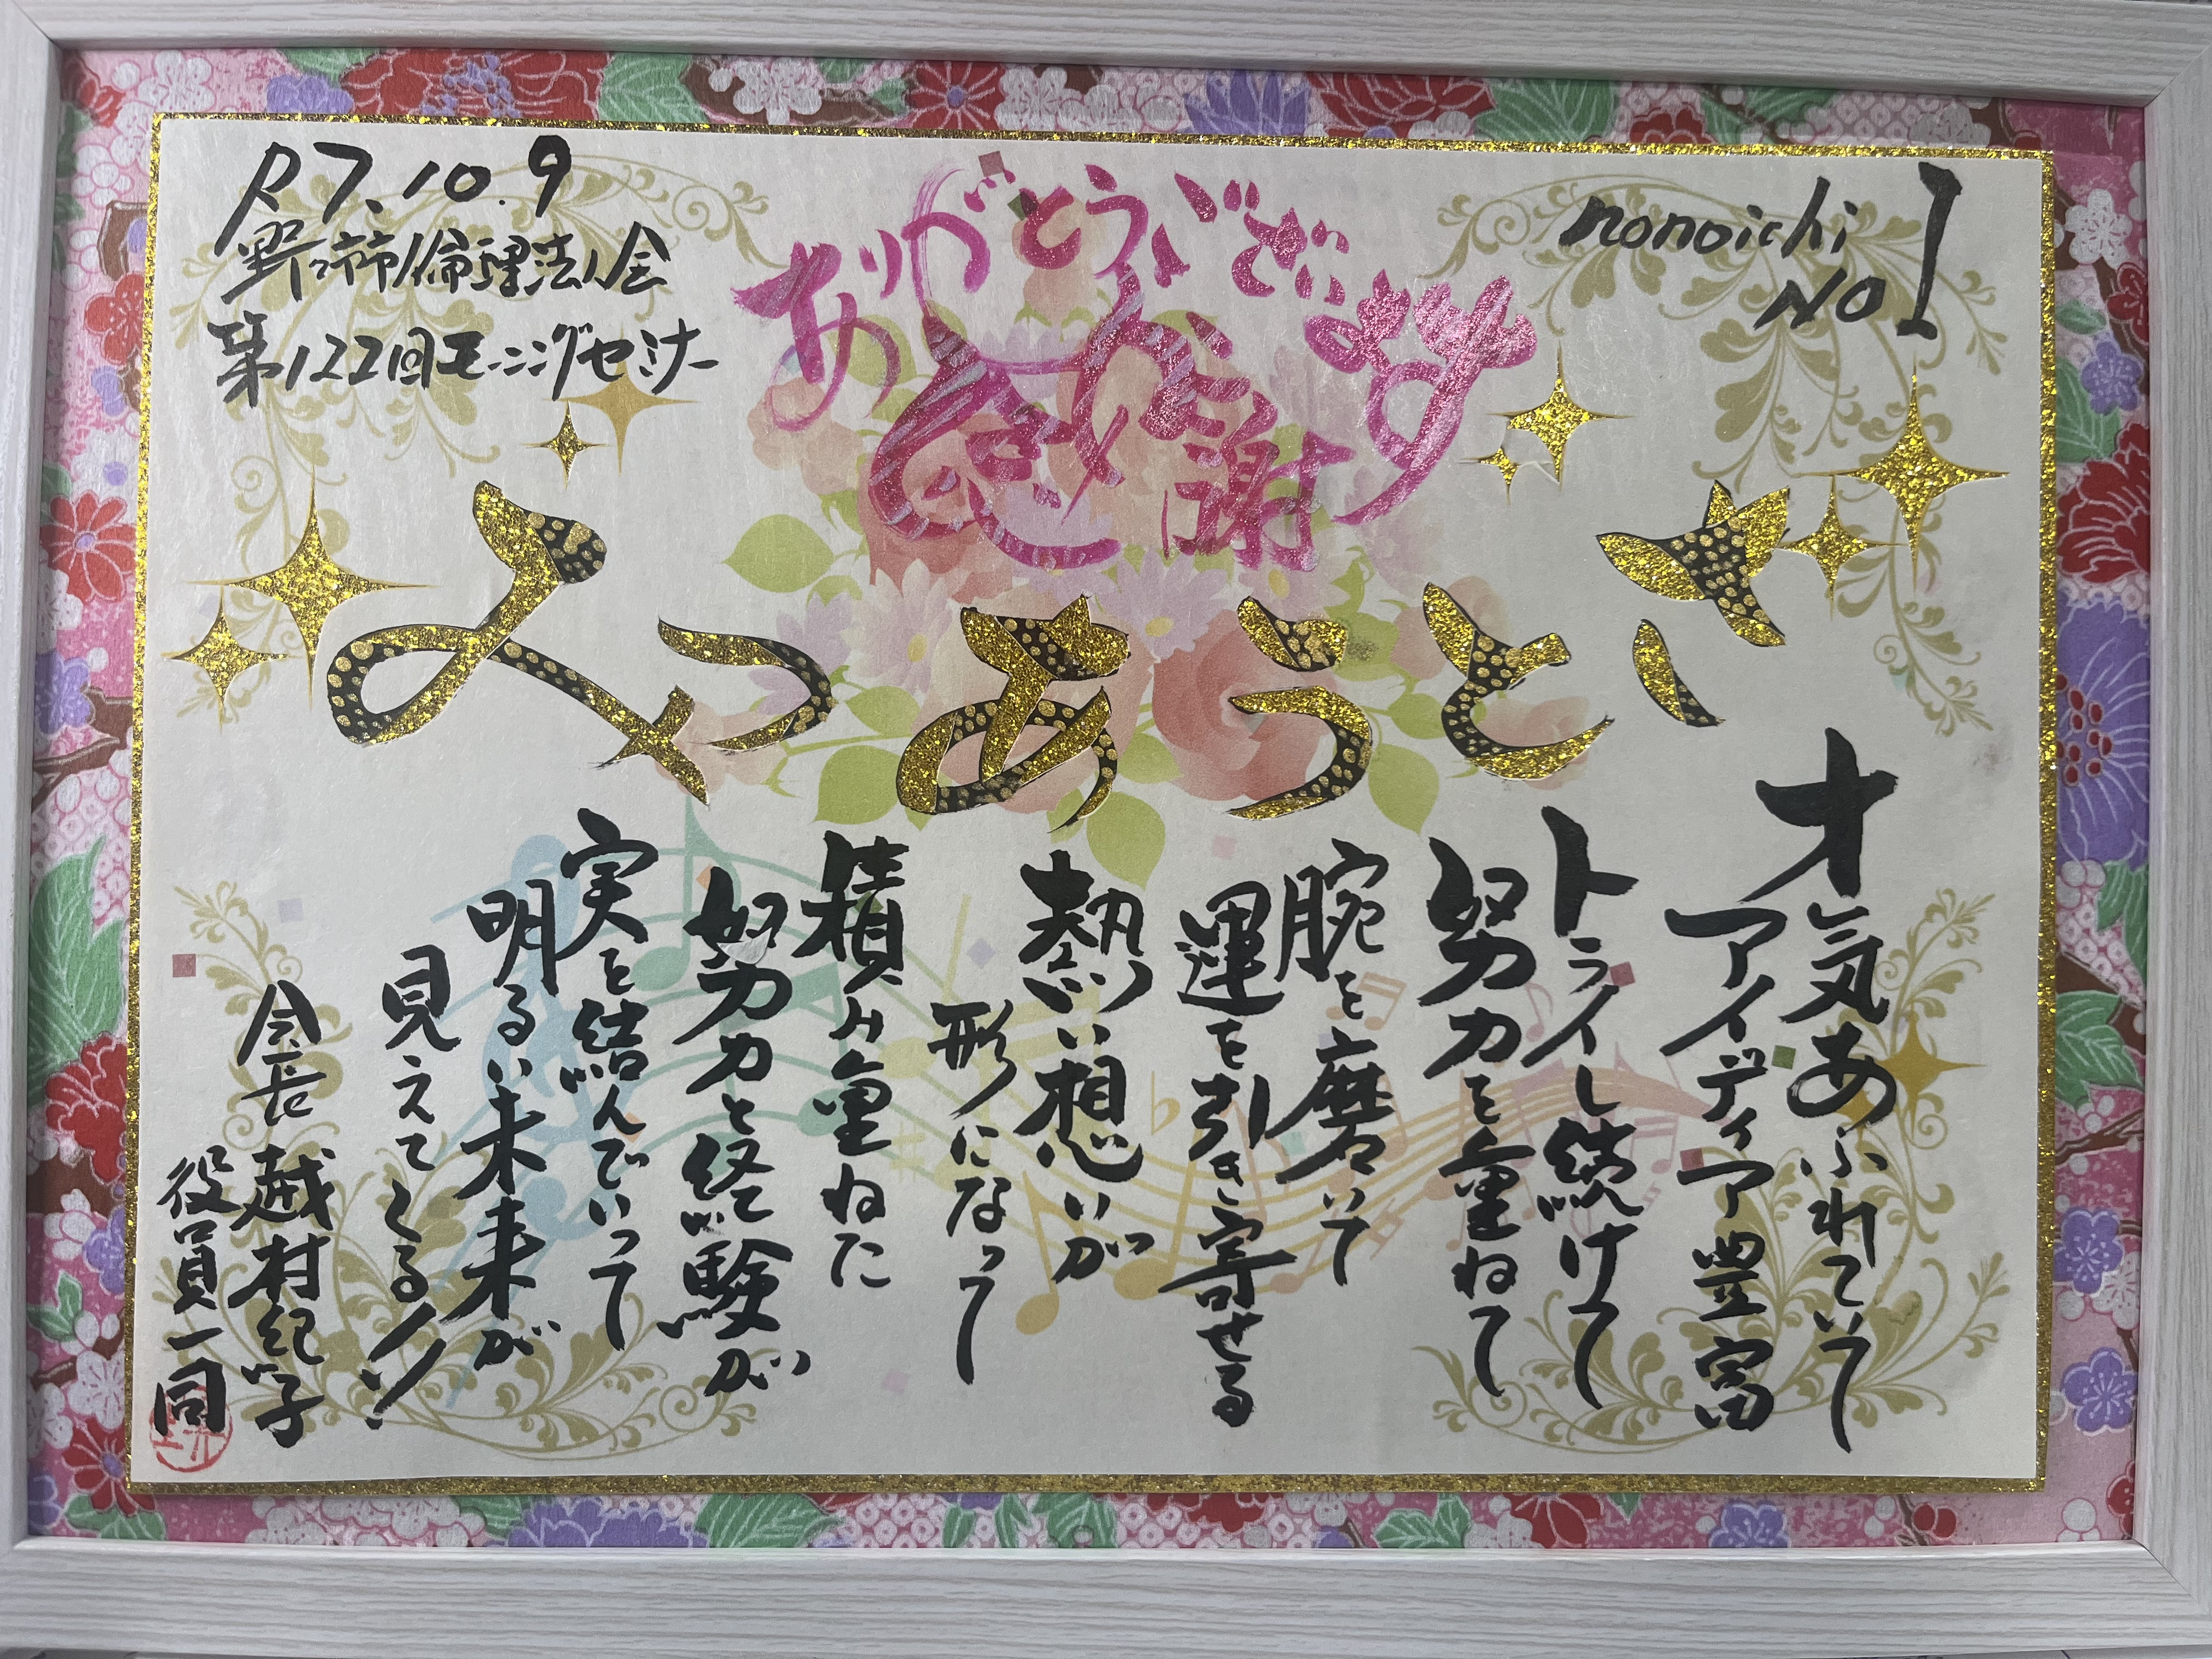 R7.10.9
野々市市倫理法人会
第122回モーニングセミナー
ありがとうございます
感謝
nonoichi
NO1
さとうあつみ
才気あふれていて
アイディア豊富
トライし続けて
努力を重ねて
腕を磨いて
運を引き寄せる
熱い想いが
形になって
積み重ねた
努力と経験が
実を結んでいって
明るい未来が
見えてくる!!
会長 越村紀子
役員一同